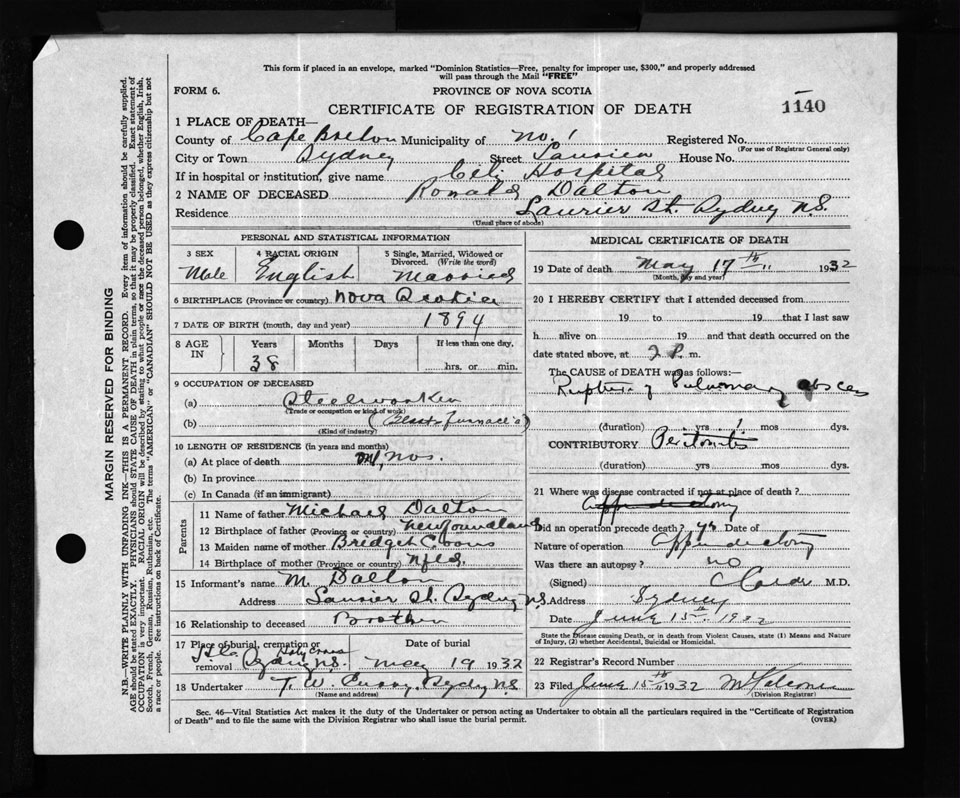 This form if placed in an envelope, marked "Dominion Statistics—Free, penalty for improper use, $300," and properly addressed
will pass through the Mail "FREE"
FORM 6. PROVINCE OF NOVA SCOTIA
CERTIFICATE OF REGISTRATION OF DEATH 1140
1 PLACE OF DEATH—
County of Cape Breton Municipality of No. 1 Registered No.
(For use of Registrar General only)
City or Town Sydney Street Laurier House No.
If in hospital or institution, give name City Hospital
2 NAME OF DECEASED Ronald Dalton
Residence Laurier St. Sydney N.S.
(Usual place of abode)
PERSONAL AND STATISTICAL INFORMATION
3 SEX 4 RACIAL ORIGIN 5 Single, Married, Widowed or
Divorced. (Write the word)
Male English Married
6 BIRTHPLACE (Province or country) Nova Scotia
7 DATE OF BIRTH (month, day and year) 1894
8 AGE IN Years Months Days If less than one day,
38 hrs. or min.
9 OCCUPATION OF DECEASED
(a) Steelworker
(Trade or occupation or kind of work)
(b) (Blast Furnace)
(Kind of industry)
10 LENGTH OF RESIDENCE (in years and months)
(a) At place of death mos.
(b) In province
(c) In Canada (if an immigrant)
Parents
11 Name of father Michael Dalton
12 Birthplace of father (Province or country) Newfoundland
13 Maiden name of mother Bridget
14 Birthplace of mother (Province or country) Nfld.
15 Informant's name M. Dalton
Address Laurier St. Sydney N.S.
16 Relationship to deceased Brother
17 Place of burial, cremation or removal Holy Cross Sydney N.S. Date of burial May 19 1932
18 Undertaker T. W. Curry, Sydney N.S.
(Name and address)
MEDICAL CERTIFICATE OF DEATH
19 Date of death May 17th 1932
(Month, day and year)
20 I HEREBY CERTIFY that I attended deceased from
19 to 19 that I last saw
h alive on 19 and that death occurred on the
date stated above, at 2 P. m.
The CAUSE of DEATH was as follows:—
Rupture of Pulmonary abscess
(duration) yrs 1 mos dys.
CONTRIBUTORY Peritonitis
(duration) yrs mos dys.
21 Where was disease contracted if not at place of death?
Appendectomy
Did an operation precede death? yes Date of
Nature of operation Appendectomy
Was there an autopsy? no
(Signed) M.D.
Address Sydney
Date June 15th 1932
State the Disease causing Death, or in death from Violent Causes, state (1) Means and Nature
of Injury, (2) whether Accidental, Suicidal or Homicidal.
22 Registrar's Record Number
23 Filed June 15th 1932
(Division Registrar)
Sec. 46—Vital Statistics Act makes it the duty of the Undertaker or person acting as Undertaker to obtain all the particulars required in the "Certificate of Registration
of Death" and to file the same with the Division Registrar who shall issue the burial permit. (OVER)
MARGIN RESERVED FOR BINDING
N.B—WRITE PLAINLY WITH UNFADING INK—THIS IS A PERMANENT RECORD. Every item of information should be carefully supplied.
AGE should be stated EXACTLY. PHYSICIANS should STATE CAUSE OF DEATH in plain terms, so that it may be properly classified. Exact statement of
OCCUPATION is very important. RACIAL ORIGIN will be described by stating to what people or race the deceased person belonged, whether English, Irish,
Scotch, French, German, Russian, Ruthenian, etc. The terms "AMERICAN" or "CANADIAN" SHOULD NOT BE USED as they express citizenship but not
a race or people. See instructions on back of Certificate.